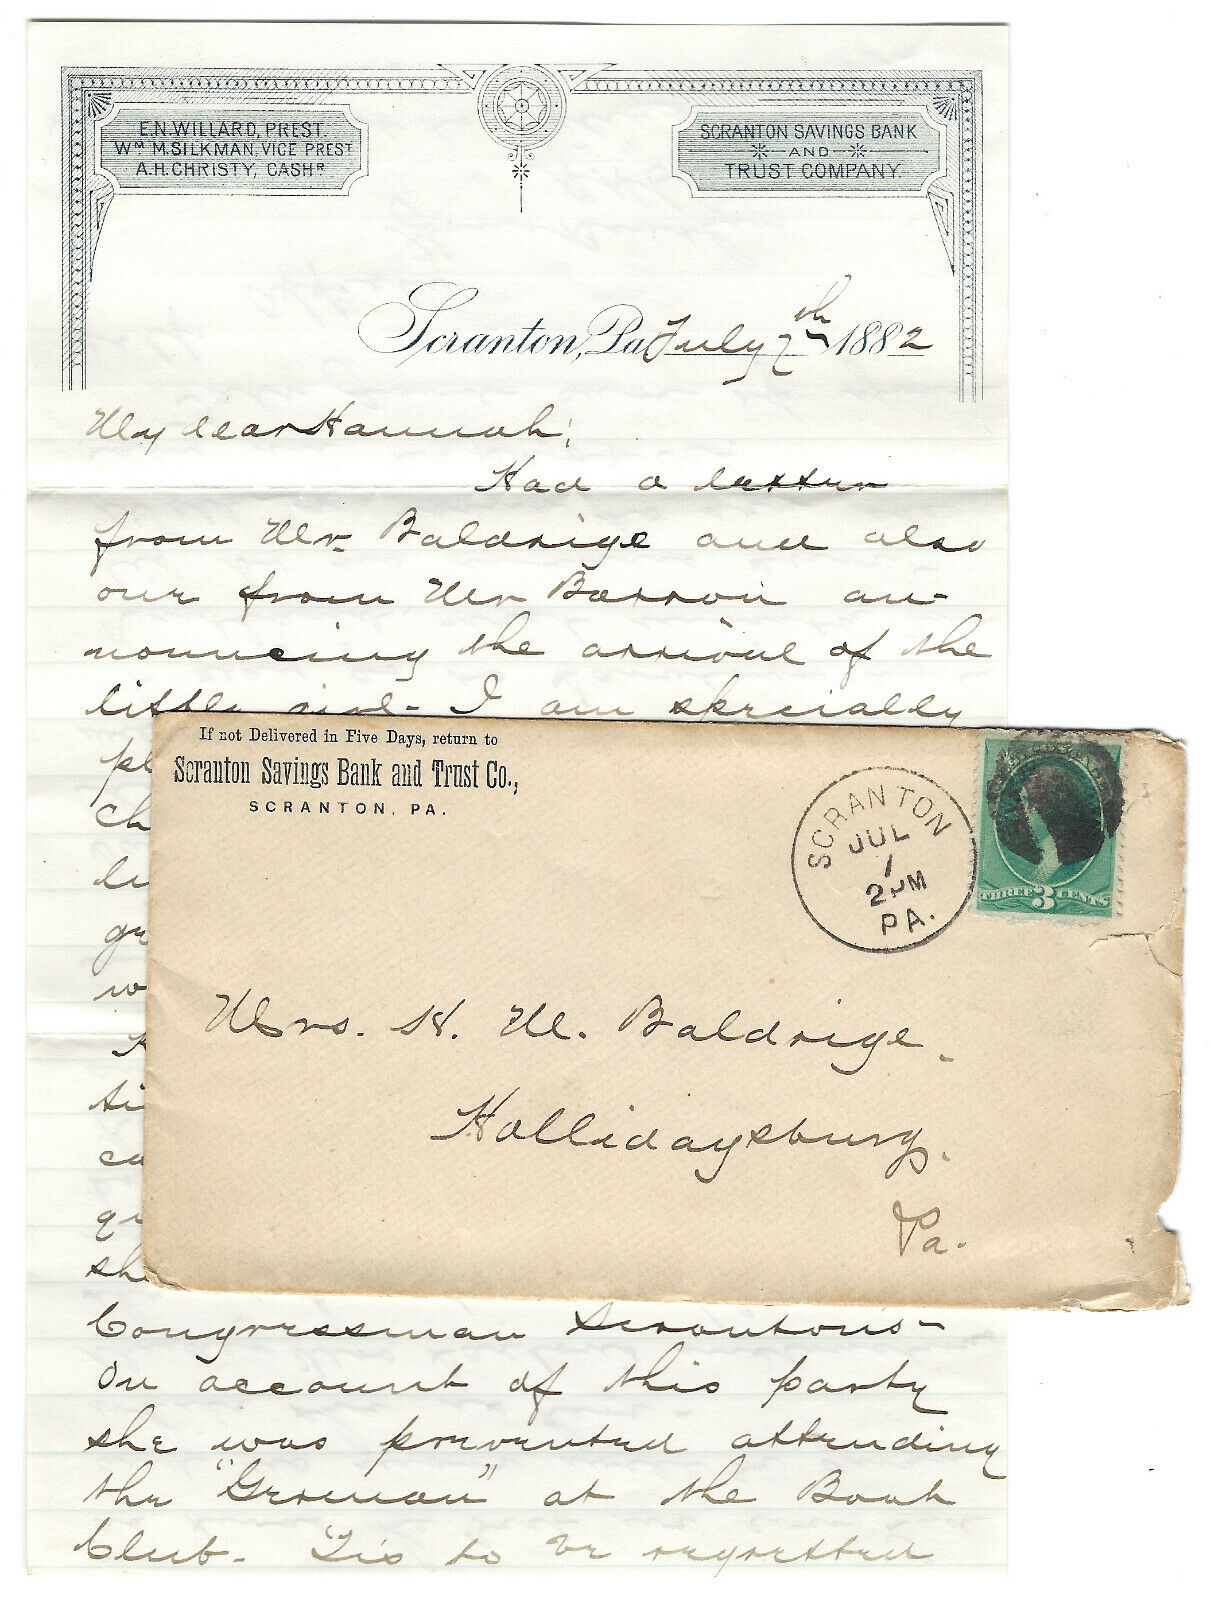 E.N. WILLARD, PREST.
Wm M. SILKMAN, VICE PREST
A.H. CHRISTY, CASHR
SCRANTON SAVINGS BANK
AND
TRUST COMPANY.
Scranton, Pa July 7th 1882
My dear Hannah;
Had a letter
from Mr. Baldrige and also
one from Mr Barron an-
nouncing the arrival of the
little girl - I am specially
pl
ch
gr
w
ti
ca
qu
she
Congressman Scranton's-
On account of this party
she was prevented attending
the "German" at the Boat
Club. 'Tis to be regretted
If not Delivered in Five Days, return to
Scranton Savings Bank and Trust Co.,
SCRANTON, PA.
SCRANTON
JUL
7
2 PM
PA.
THREE 3 CENTS
Mrs. H. M. Baldrige.
Hollidaysburg.
Pa.